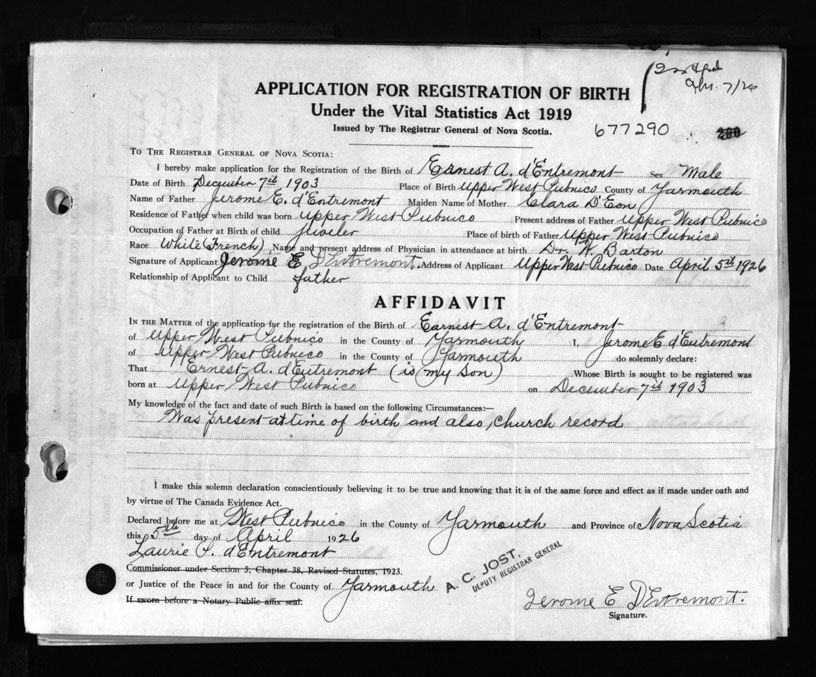 APPLICATION FOR REGISTRATION OF BIRTH
Apr. 7/26
Under the Vital Statistics Act 1919
Issued by The Registrar General of Nova Scotia.
677290
TO THE REGISTRAR GENERAL OF NOVA SCOTIA:
I hereby make application for the Registration of the Birth of Ernest A. d'Entremont Sex Male
Date of Birth December 7th 1903 Place of Birth Upper West Pubnico County of Yarmouth
Name of Father Jerome E. d'Entremont Maiden Name of Mother Clara D'Eon
Residence of Father when child was born Upper West Pubnico Present address of Father Upper West Pubnico
Occupation of Father at Birth of child Place of birth of Father Upper West Pubnico
Race White (French) Name and present address of Physician in attendance at birth Dr. W. Barton
Signature of Applicant Jerome E D'Entremont. Address of Applicant Upper West Pubnico Date April 5th 1926
Relationship of Applicant to Child father
AFFIDAVIT
IN THE MATTER of the application for the registration of the Birth of Earnest A. d'Entremont
of Upper West Pubnico in the County of Yarmouth I, Jerome E. d'Entremont
of Upper West Pubnico in the County of Yarmouth do solemnly declare:
That Ernest A. d'Entremont (is my son) Whose Birth is sought to be registered was
born at Upper West Pubnico on December 7th 1903
My knowledge of the fact and date of such Birth is based on the following Circumstances:—
Was present at time of birth and also, church record
I make this solemn declaration conscientiously believing it to be true and knowing that it is of the same force and effect as if made under oath and
by virtue of The Canada Evidence Act.
Declared before me at West Pubnico in the County of Yarmouth and Province of Nova Scotia
this 5th day of April 1926
Laurie P. d'Entremont
Commissioner under Section 5, Chapter 38, Revised Statutes, 1923.
or Justice of the Peace in and for the County of Yarmouth
A. C. JOST.
DEPUTY REGISTRAR GENERAL
If sworn before a Notary Public affix seal.
Jerome E D'Entremont.
Signature.